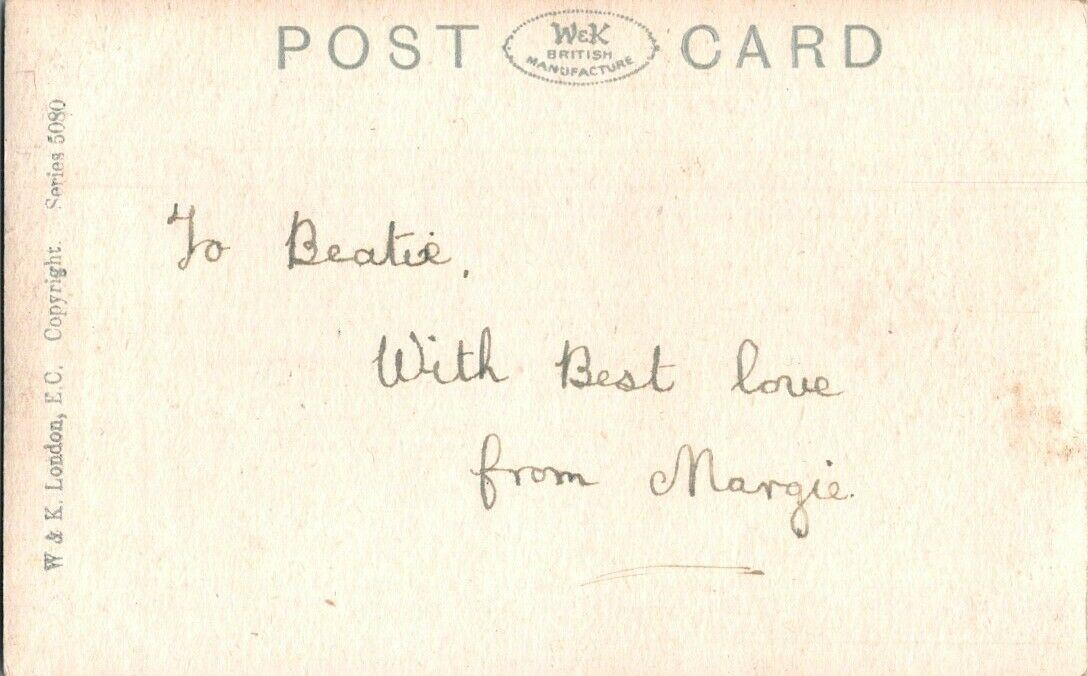 POST CARD
W&K
BRITISH
MANUFACTURE
W & K. London, E.C. Copyright. Series 5080
To Beatie,
With Best love
from Margie.